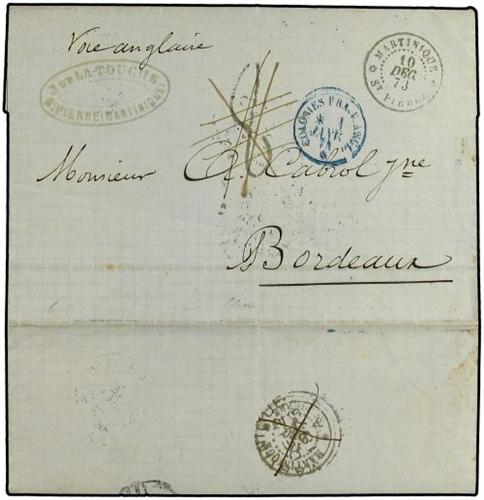 Voie anglaise
J. DE LA TOUCHE
St PIERRE (MARTINIQUE)
MARTINIQUE
10
DEC.
73
St PIERRE
COLONIES FRA. V. ANGL.
1
JANV.
74
Monsieur A. Cabrol jne
Bordeaux
MARTINIQUE